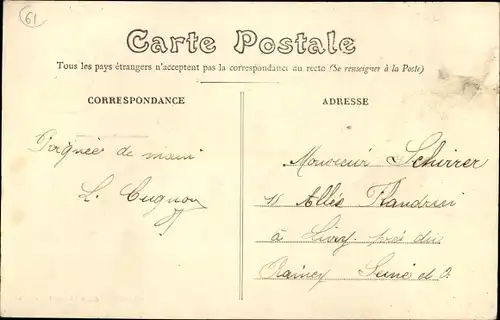 61
Carte Postale
Tous les pays étrangers n'acceptent pas la correspondance au recto (Se renseigner à la Poste)
CORRESPONDANCE
ADRESSE
Poignée de main
L. Cugnon
Monsieur Schirrer
11 Allée Flandrin
à Livry près du
Raincy Seine et O.